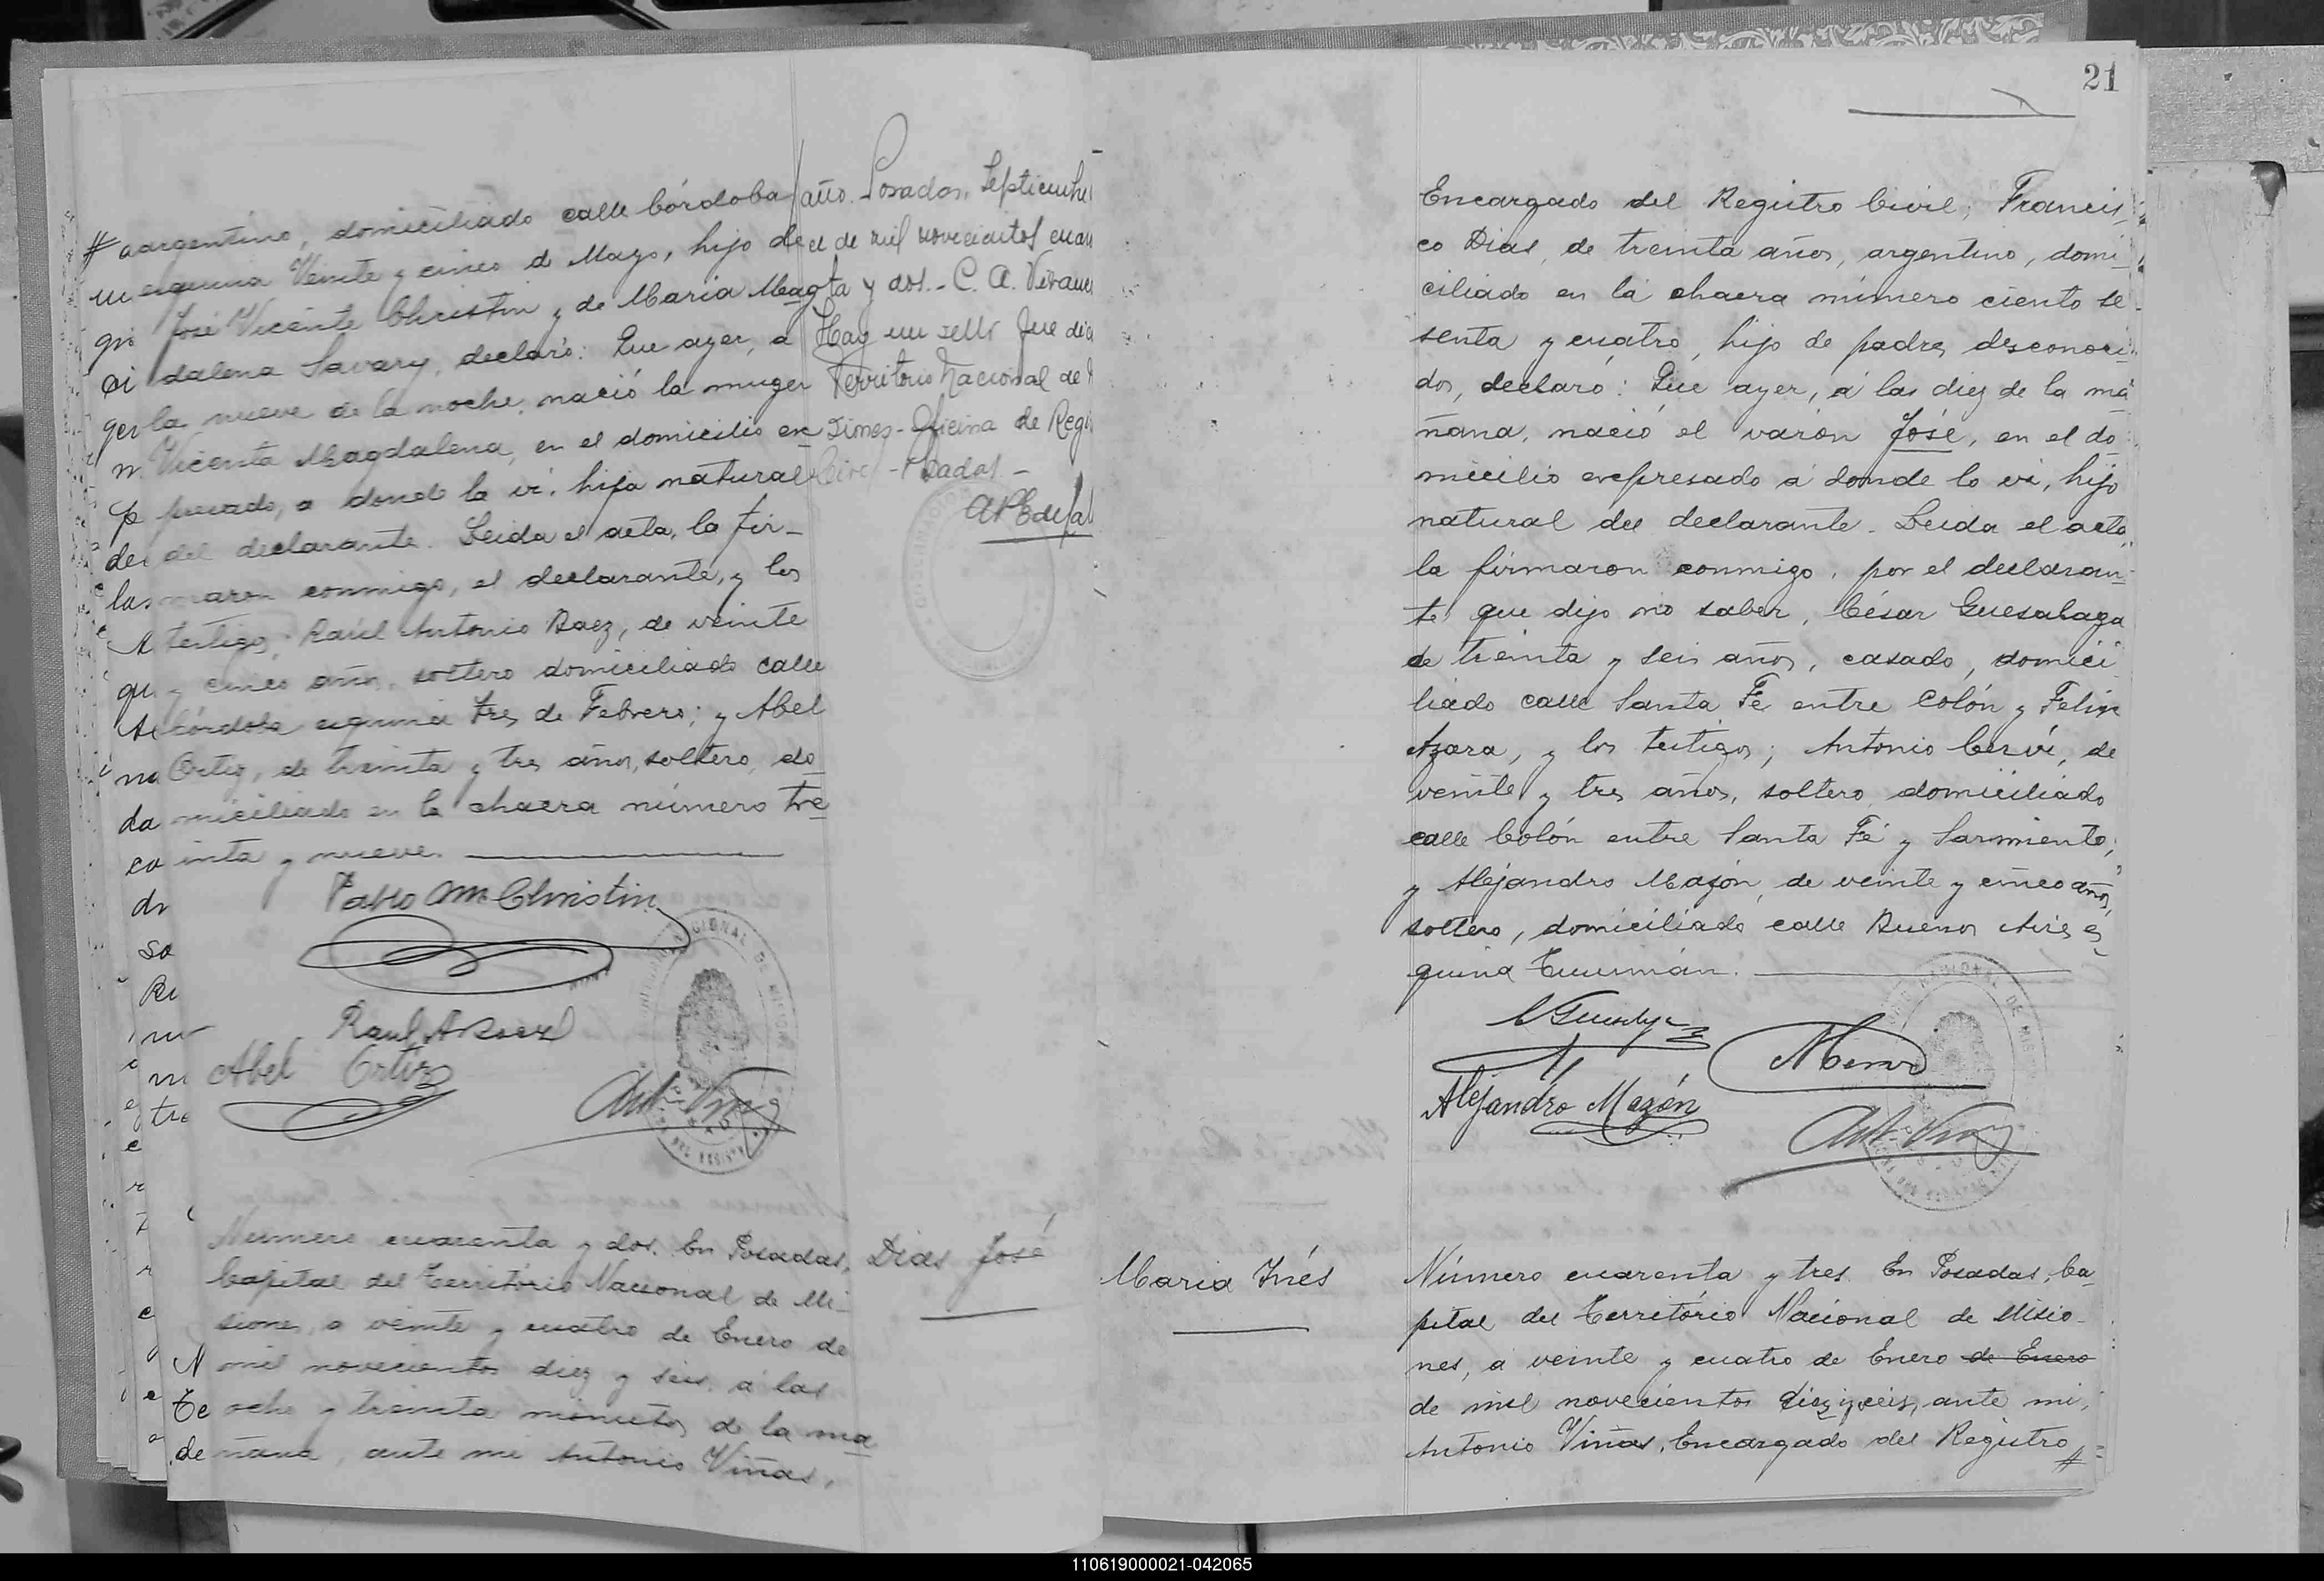 # argentino, domiciliado calle Córdoba
esquina Veinte y cinco de Mayo, hijo de
José Vicente Christin y de Maria Mag
dalena Savary, declaró: Que ayer, a
la nueve de la noche, nació la muger
Vicenta Magdalena, en el domicilio ex
presado, a donde la ví, hija natural
del declarante. Leida el acta, la fir-
maron conmigo, el declarante, y los
testigos, Raúl Antonio Baez, de veinte
y cinco años, soltero domiciliado calle
Córdoba esquina Tres de Febrero; y Abel
Ortiz, de treinta y tres años, soltero, do
miciliado en la chacra número tre
inta y nueve.
Pablo Christin
Raul A Baez
Abel Ortiz
Ant. Viñas
año. Posadas, Septiembre
de mil novecientos cuaren
ta y dos. - C. A.
Hay un sello que dice
Territorio Nacional de
siones - Oficina de Regis
Civil - Posadas. -
Número cuarenta y dos. En Posadas,
Capital del Territorio Nacional de Mi-
siones, a veinte y cuatro de Enero de
mil novecientos diez y seis, á las
ocho y treinta minutos de la ma
ñana, ante mi Antonio Viñas,
Dias José
21
Encargado del Registro Civil; Francis
co Dias, de treinta años, argentino, domi-
ciliado en la chacra número ciento se
senta y cuatro, hijo de padres desconoci-
dos, declaró: Que ayer, á las diez de la ma
ñana, nació el varón José, en el do
micilio expresado á donde lo ví, hijo
natural del declarante. Leida el acta,
la firmaron conmigo, por el declaran-
te que dijo no saber, César Guesalaga
de treinta y seis años, casado, domici
liado calle Santa Fé entre Colón y Felix
Azara, y los testigos; Antonio Cerví, de
veinte y tres años, soltero, domiciliado
calle Colón entre Santa Fé y Sarmiento;
y Alejandro Mazón, de veinte y cinco años,
soltero, domiciliado calle Buenos Aires es
quina Tucumán.
Alejandro Mazón
Ant. Viñas
Maria Inés
Número cuarenta y tres. En Posadas, Ca
pital del Território Nacional de Misio-
nes, á veinte y cuatro de Enero de Enero
de mil novecientos diez y seis, ante mi,
Antonio Viñas, Encargado del Registro #
110619000021-042065